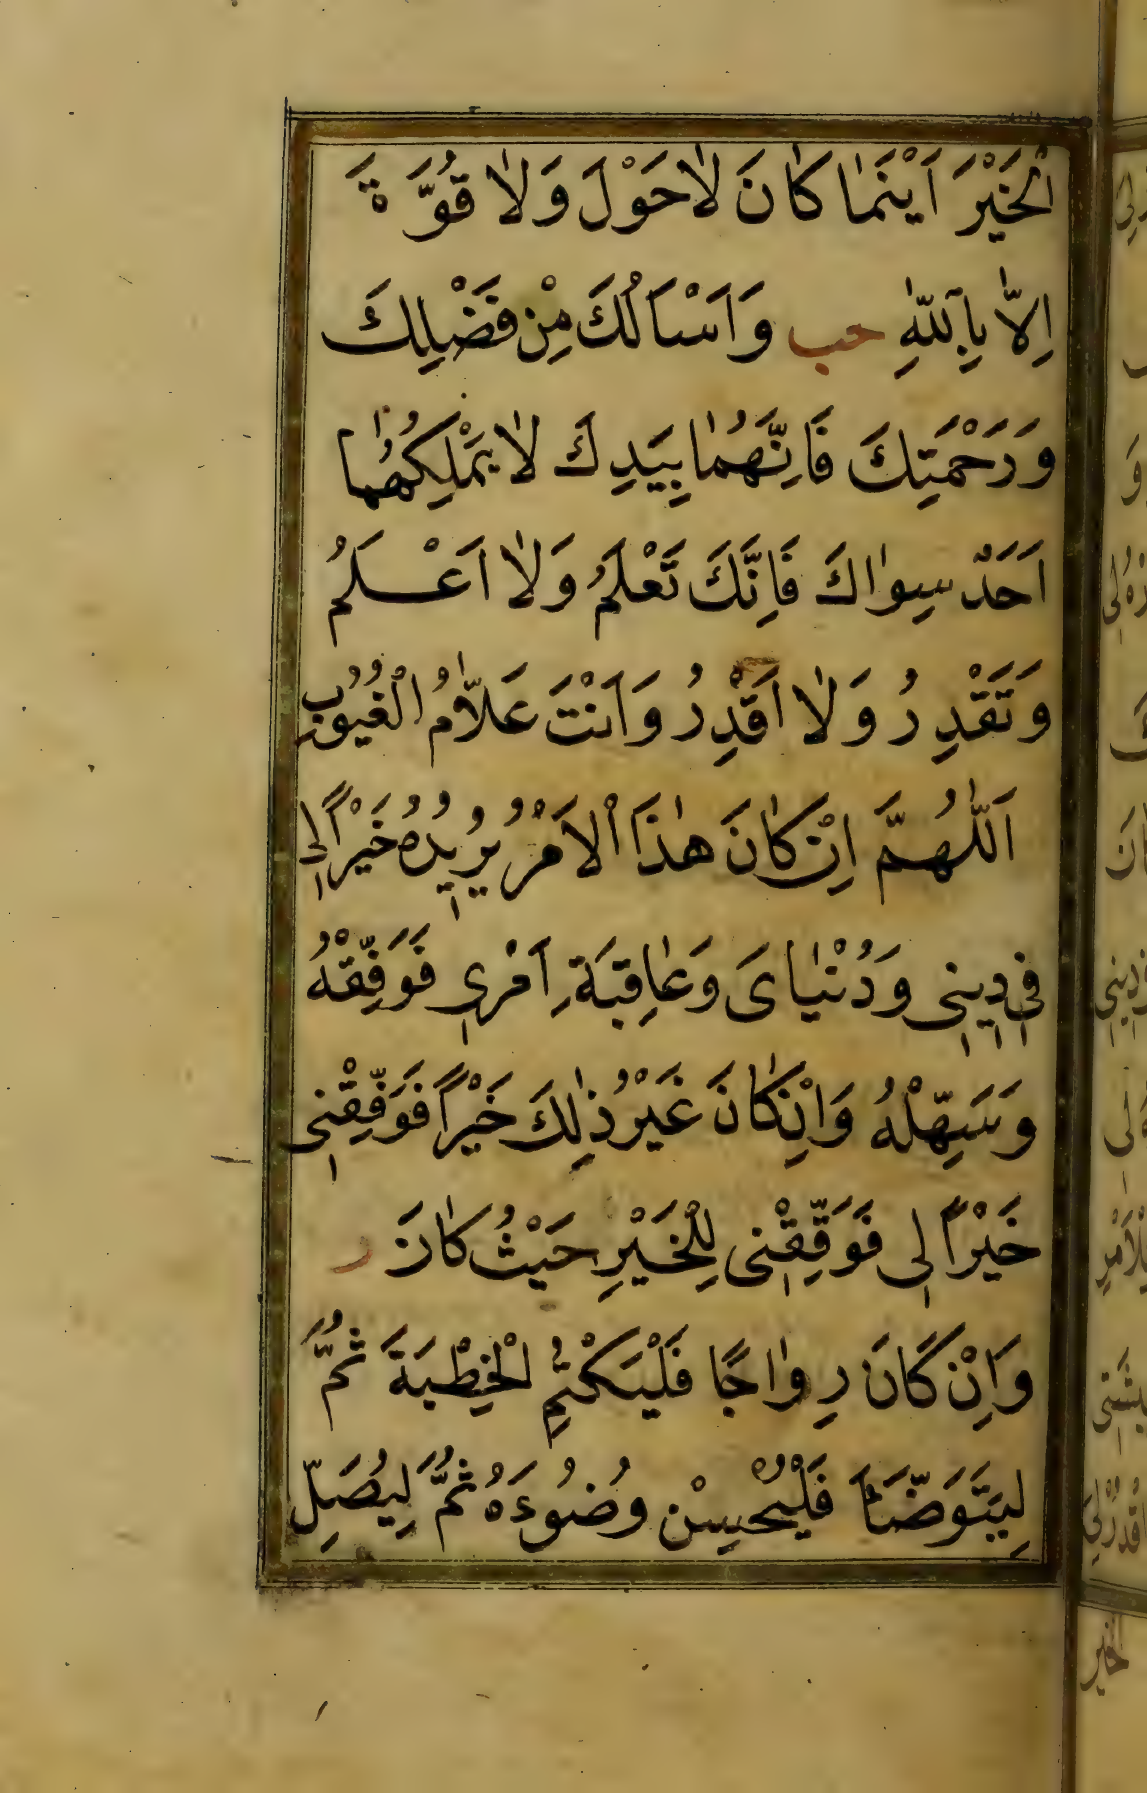 اَلْخَيْرَ اَيْنَمٰا كٰانَ لٰا حَوْلَ وَلٰا قُوَّةَ
اِلاّٰ بِاللّٰهِ حب وَاَسْاَلُكَ مِنْ فَضْلِكَ
وَرَحْمَتِكَ فَاِنَّهُمٰا بِيَدِكَ لٰا يَمْلِكُهُمٰا
اَحَدٌ سِوٰاكَ فَاِنَّكَ تَعْلَمُ وَلٰا اَعْلَمُ
وَتَقْدِرُ وَلٰا اَقْدِرُ وَاَنْتَ عَلاّٰمُ الْغُيُوبِ
اَللّٰهُمَّ اِنْ كٰانَ هٰذَا الْاَمْرُ يُرِيدُهُ خَيْرًا لِى
فِى دِينِى وَدُنْيٰاىَ وَعٰاقِبَةِ اَمْرِى فَوَفِّقْهُ
وَسَهِّلْهُ وَاِنْ كٰانَ غَيْرُ ذٰلِكَ خَيْرًا فَوَفِّقْنِى
خَيْرًا لِى فَوَفِّقْنِى لِلْخَيْرِ حَيْثُ كٰانَ ر
وَاِنْ كَانَ رِوٰاجًا فَلْيَكْتُمِ الْخِطْبَةَ ثُمَّ
لِيَتَوَضَّأْ فَلْيُحْسِنْ وُضُوءَهُ ثُمَّ لِيُصَلِّ
الخير